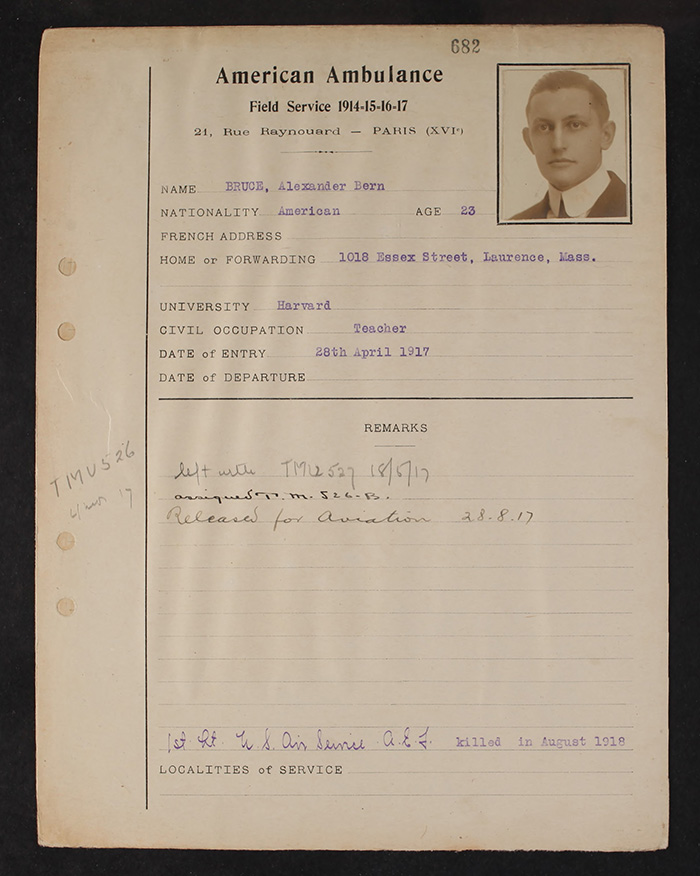 682
American Ambulance
Field Service 1914-15-16-17
21, Rue Raynouard — PARIS (XVIe)
NAME BRUCE, Alexander Bern
NATIONALITY American AGE 23
FRENCH ADDRESS
HOME or FORWARDING 1018 Essex Street, Laurence, Mass.
UNIVERSITY Harvard
CIVIL OCCUPATION Teacher
DATE of ENTRY 28th April 1917
DATE of DEPARTURE
REMARKS
TMU 526
17
left with TMU 527 18/5/17
assigned T.M. 526-B.
Released for Aviation 28-8-17
1st Lt. U.S. Air Service A.E.F. killed in August 1918
LOCALITIES of SERVICE